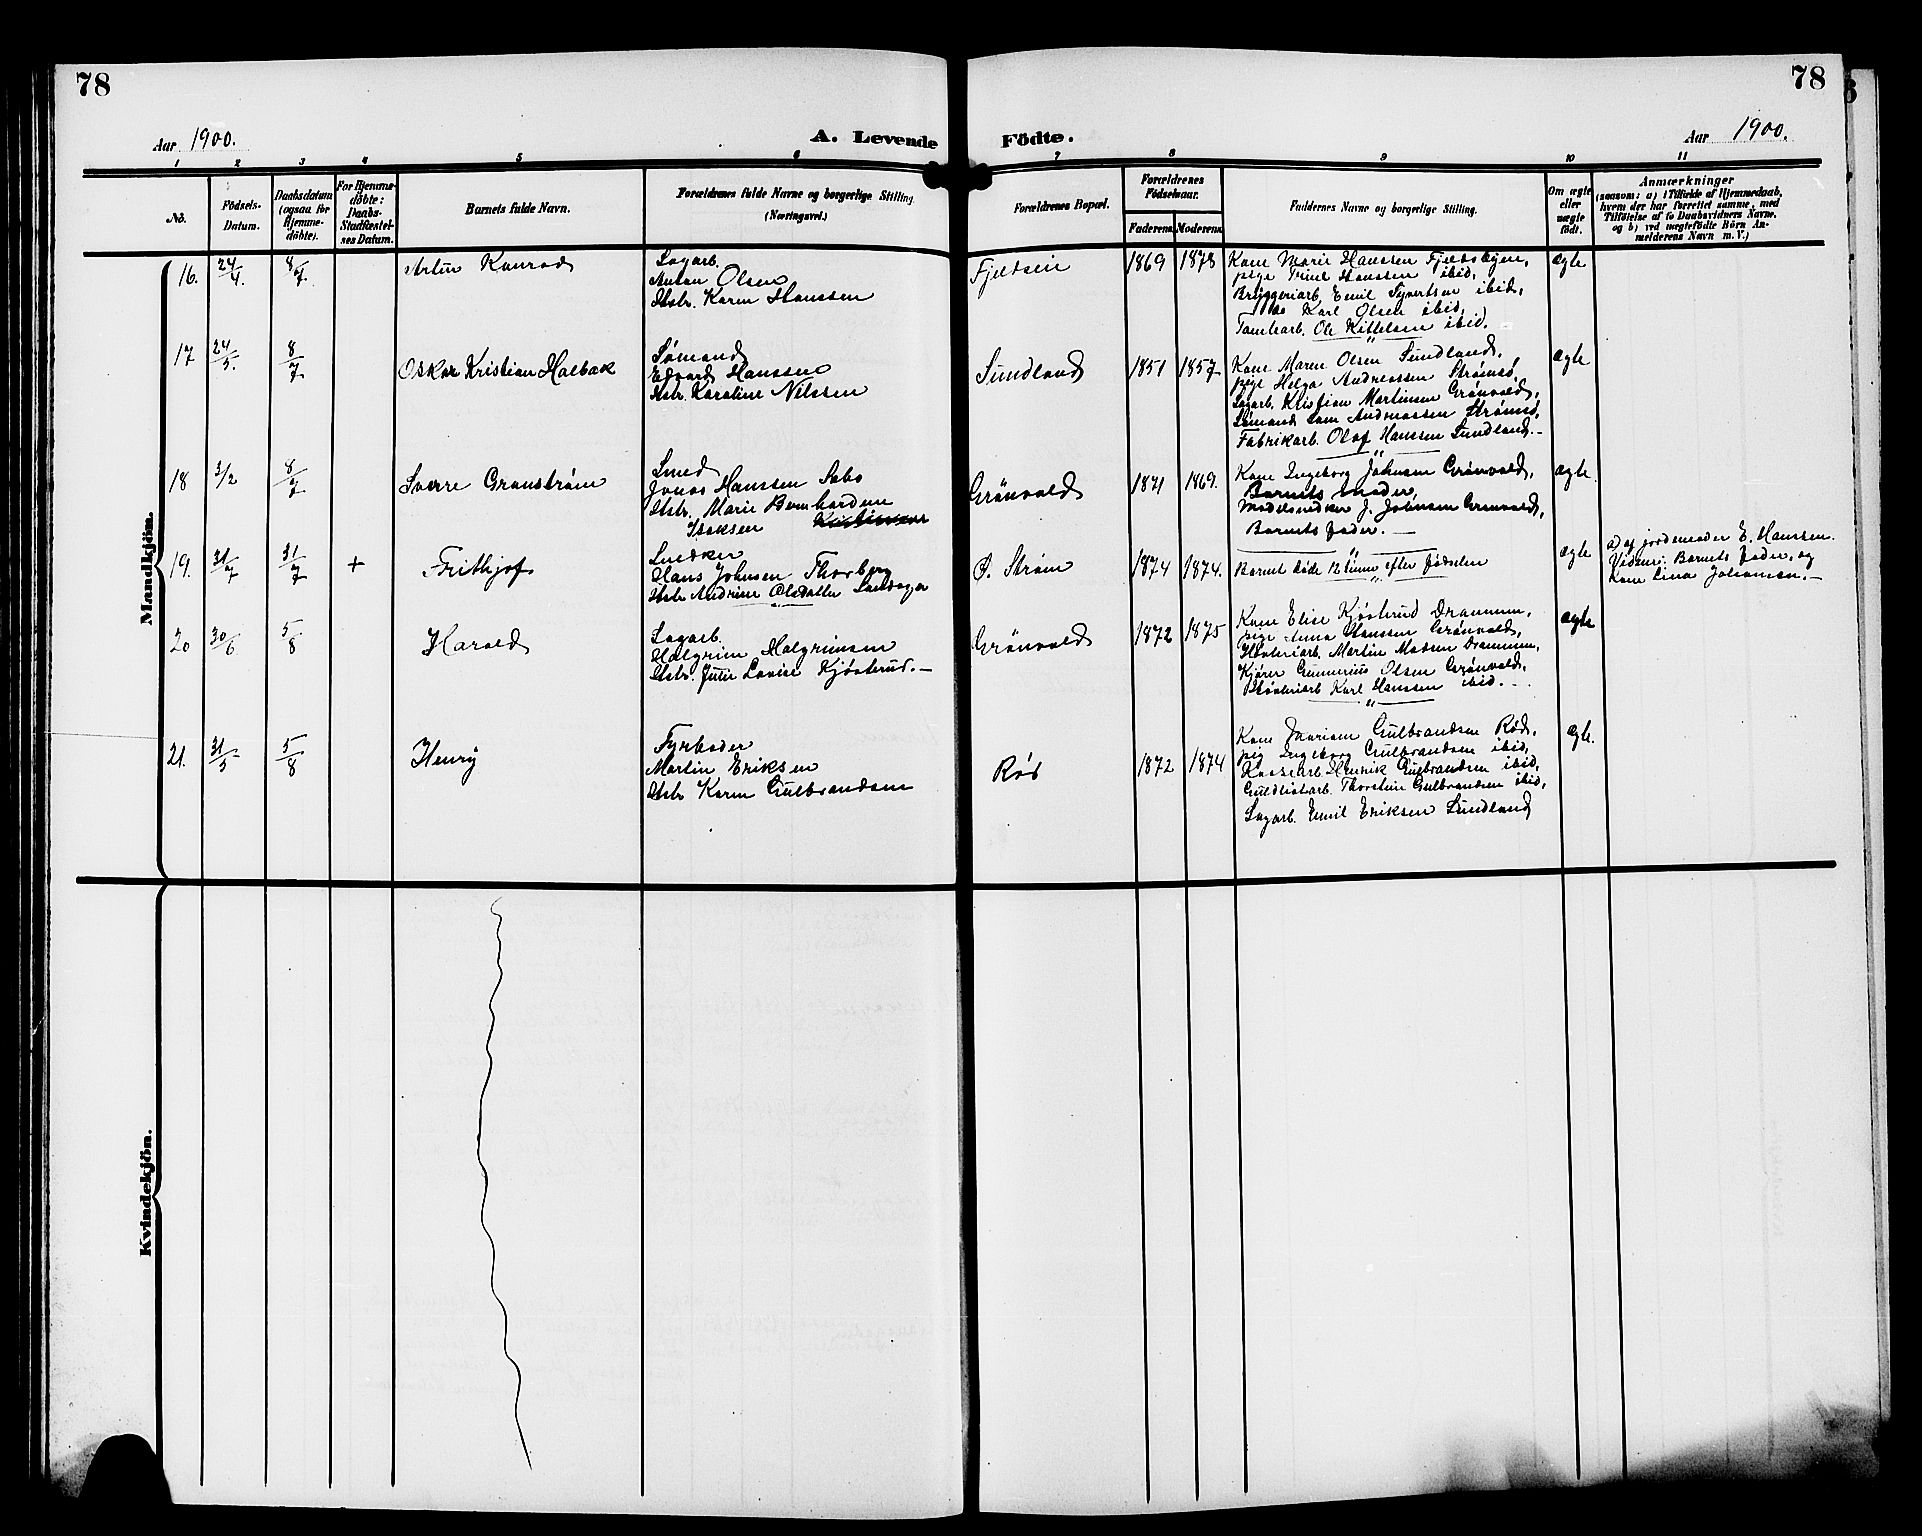 78
78
Aar 1900.
A. Levende
Födte.
Aar 1900.
1 2 3 4 5 6 7 8 9 10 11
No.
Födsels-
Datum.
Daabsdatum
(ogsaa for
Hjemme-
döbte).
For Hjemme-
döbte:
Daabs-
Stadfæstel-
ses Datum.
Barnets fulde Navn.
Forældrenes fulde Navne og borgerlige Stilling.
(Næringsvei.)
Forældrenes Bopæl.
Forældrenes
Födselsaar.
Faderens
Moderens
Faddernes Navne og borgerlige Stilling.
Om ægte
eller
uægte
födt.
Anmærkninger
(saasom: a) i Tilfælde af Hjemmedaab,
hvem der har forrettet samme, med
Tilföielse af to Daabsvidners Navne,
og b) ved uægtefödte Börn An-
melderens Navn m. V.)
Mandkjön.
16. 24/4. 8/7. Artur Konrad
Sagarb.
Anton Olsen
Hstr. Karen Hanssen
Fjeldseie 1869 1878
Kone Marie Hanssen Fjeldsbyen,
pige Trine Hanssen ibid,
Bryggeriarb. Emil Syvertsen ibid,
do Karl Olsen ibid,
Tomtearb. Ole Kittelsen ibid.
ægte
17 24/5. 8/7 Oskar Kristian Halbak
Sømand
Edvard Hanssen
Hstr. Karoline Nilssen
Sundland 1851 1857
Kone Maren Olsen Sundland,
pige Helga Andreassen Strømsø,
Sagarb. Kristian Martinsen Grønvold,
Sømand Andreassen Strømsø,
Fabrikarb. Olaf Hanssen Sundland.-
ægte
18 3/2 8/7 Sverre Granstrøm
Smed
Jonas Hanssen Sabo
Hstr. Marie Bernhardine
Isaksen
Grønvold 1871 1869.
Kone Ingeborg Johnsen Grønvold,
Barnets moder,
Modelsnedker J. Johnsen Grønvold,
Barnets fader.-
ægte.
19. 31/7 31/7 + Frithjof
Snedker
Hans Johnsen Thorberg
Hstr Andrine Olsdatter
Ø. Strøm 1874 1874.
Barnet døde 12 timer efter fødselen
ægte
a) af jordemoder E. Hanssen.
Vidner: Barnets fader, og
Kone Lina Johansen.-
20 30/6 5/8 Harald
Sagarb.
Halgrim Halgrimsen
Hstr. Julie Lovise Kjøsterud.-
Grønvold 1872 1875
Kone Elise Kjøsterud Drammen,
pige Anna Hanssen Grønvold,
Høvleriarb. Martin Madsen Drammen,
Kjører Gunnerius Olsen Grønvold,
Høvleriarb Karl Hanssen ibid.-
ægte
21. 31/5 5/8 Henry
Fyrbøder
Martin Eriksen
Hstr Karen Gulbrandsen
Rød 1872 1874
Kone Mariane Gulbrandsen Rød,
pig Ingeborg Gulbrandsen ibid,
Henrik Gulbrandsen ibid,
Guldlistarb. Thorstein Gulbrandsen ibid,
Sagarb. Emil Eriksen Sundland
ægte.
Kvindekjön.